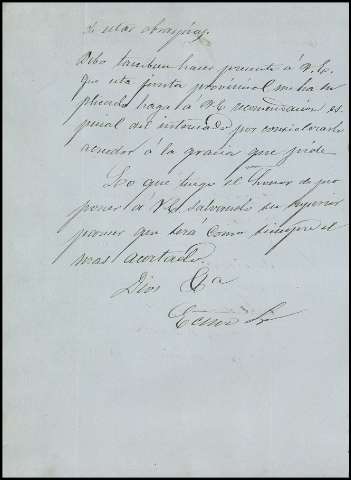 de estar
Debo tambien hacer presente á V.E.
que esta junta provincial me ha su
plicado haga á V.E. recomendacion es
pecial del interesado por considerarle
acreedor á la gracia que pide
Lo que tengo el honor de pro
poner a V.E. salvando su superior
parecer que sera como siempre el
mas acertado.
Dios &a
Ecmo Sr